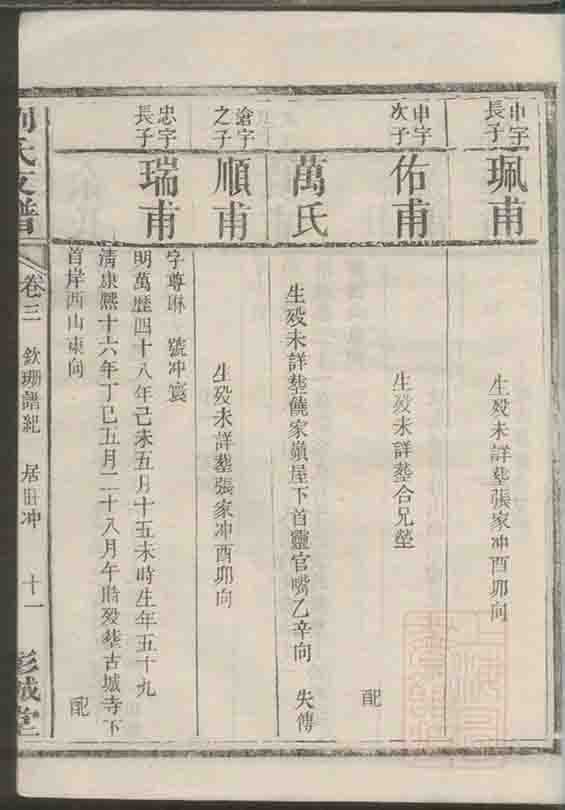 申字長子
珮甫
生殁未詳塟張家冲酉卯向
申字次子
佑甫
生殁未詳塟合兄塋
配
萬氏
生殁未詳塟饒家嶺屋下首靈官嘴乙辛向 失傳
滄字之子
順甫
生殁未詳塟張家冲酉卯向
忠字長子
瑞甫
字尊琳 號冲寰
明萬歷四十八年己未五月十五未時生年五十九
淸康熙十六年丁巳五月二十八月午時殁塟古城寺下
首岸西山東向
配
劉氏支譜
卷三
欽珊譜紀
居田冲
十一
彭城堂